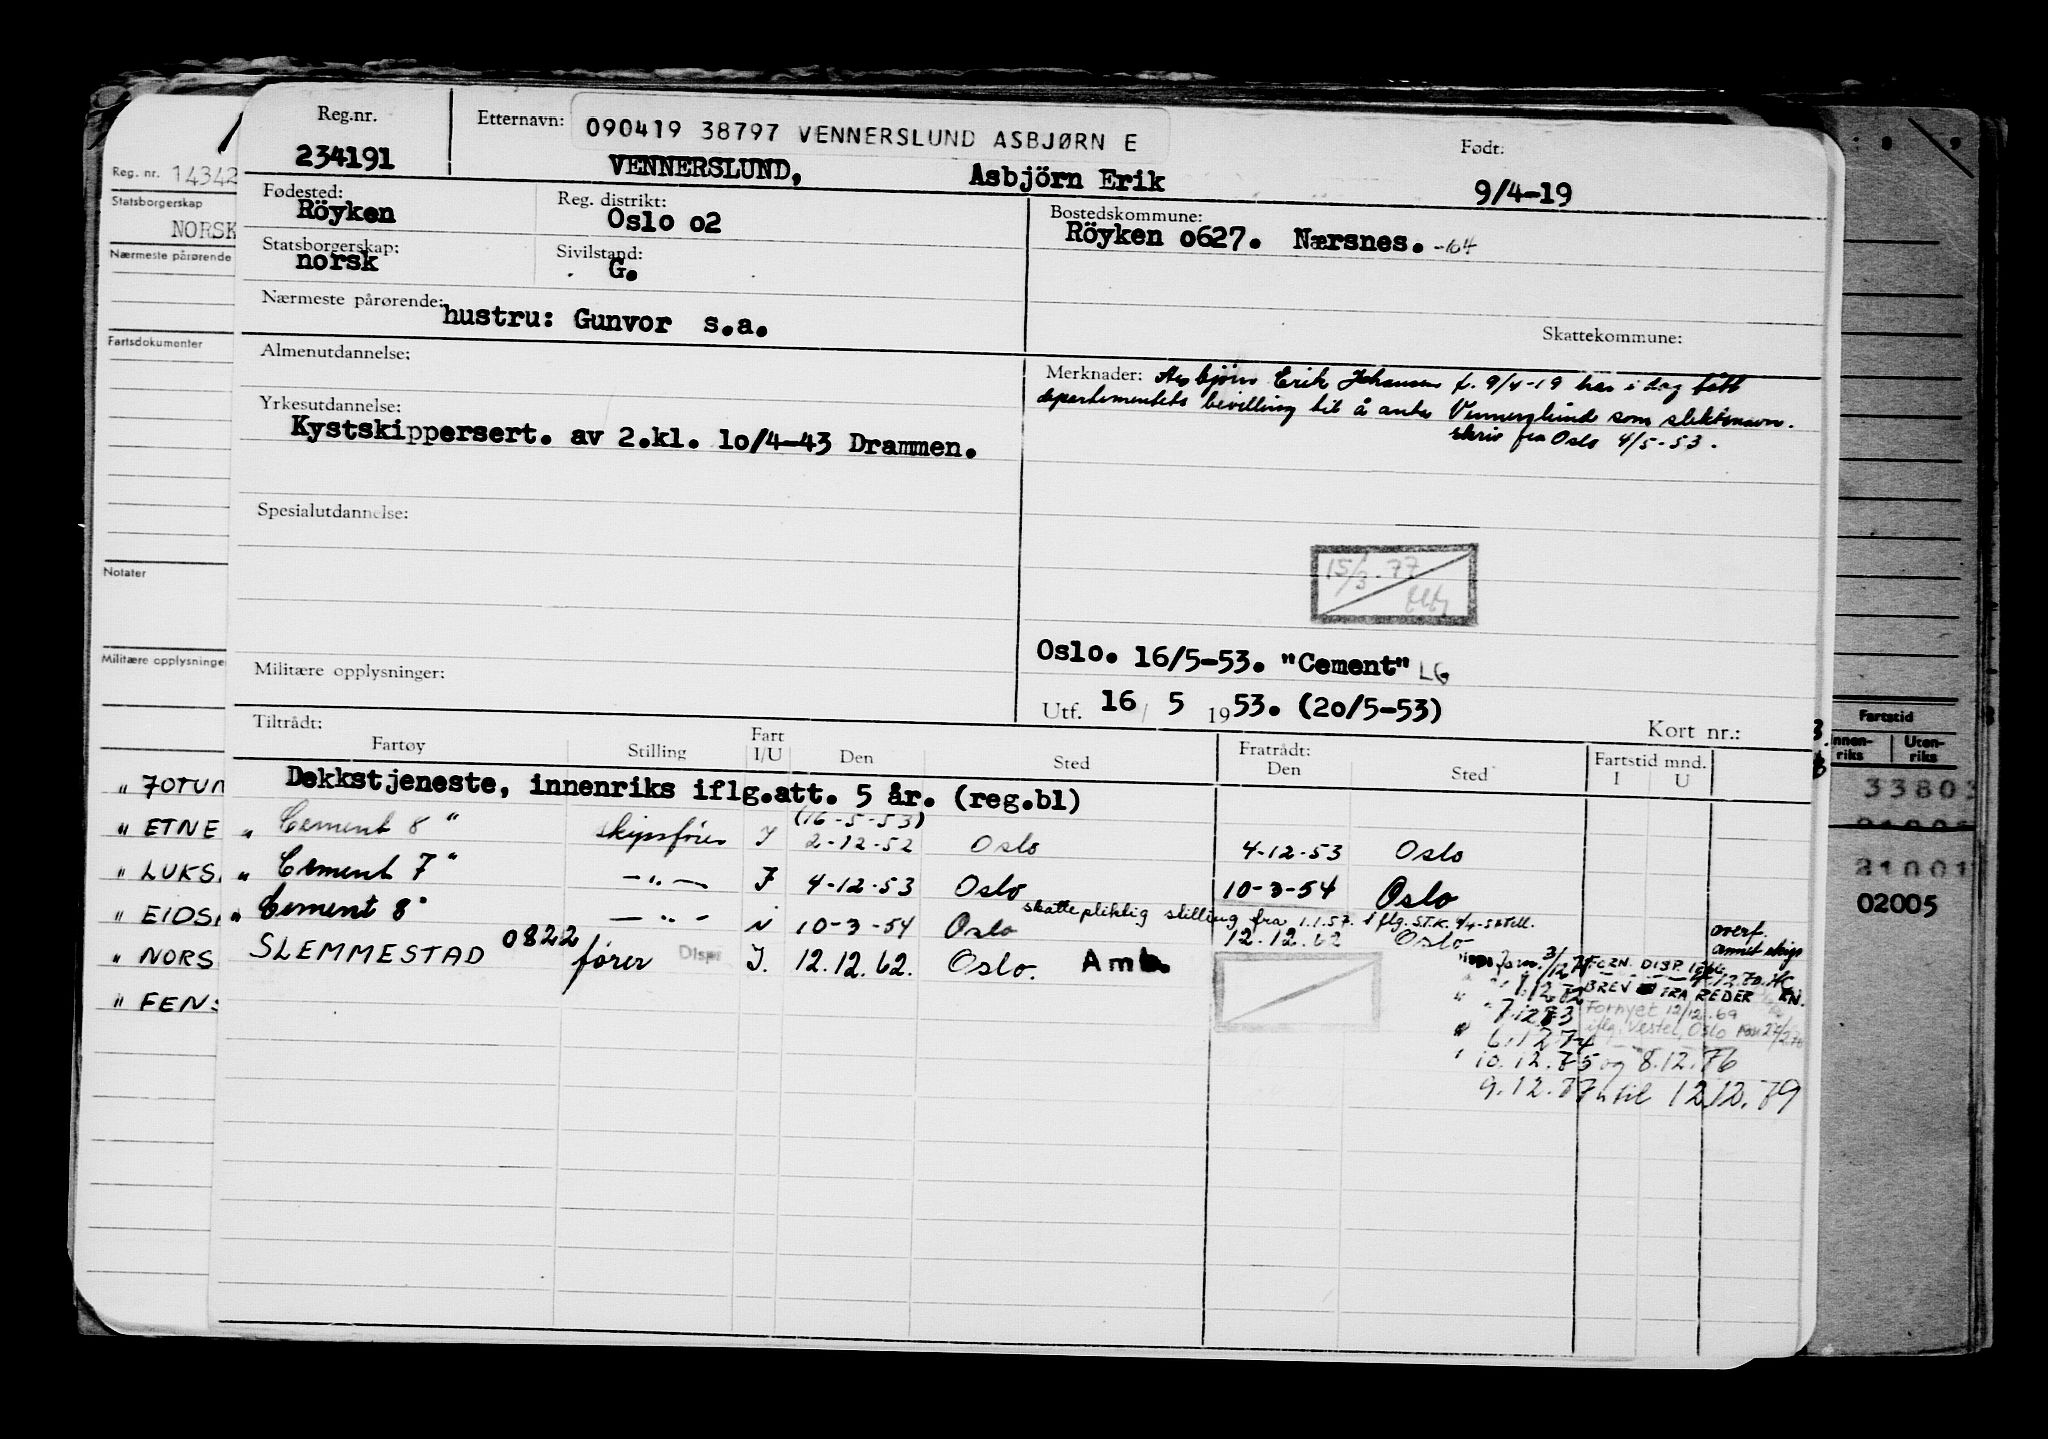 Reg.nr.
234191
Etternavn:
090419 38797 VENNERSLUND ASBJØRN E
VENNERSLUND, Asbjörn Erik
Født:
9/4-19
Fødested:
Röyken
Reg. distrikt:
Oslo o2
Bostedskommune:
Röyken o627. Nærsnes. -64
Statsborgerskap:
norsk
Sivilstand:
G.
Nærmeste pårørende:
hustru: Gunvor s.a.
Skattekommune:
Almenutdannelse:
Merknader: Asbjörn Erik Johansen f. 9/4-19 har i dag fått
departementets bevilling til å anta Vennerslund som slektsnavn.
skriv fra Oslo 4/5-53.
Yrkesutdannelse:
Kystskippersert. av 2.kl. lo/4-43 Drammen.
Spesialutdannelse:
15/3.77
Militære opplysninger:
Oslo. 16/5-53. "Cement" LG
Utf. 16 / 5 1953. (2o/5-53)
Kort nr.:
Tiltrådt:
Fartøy Stilling Fart I/U Den Sted
Fratrådt:
Den Sted Fartstid mnd.
I U
Dekkstjeneste, innenriks iflg.att. 5 år. (reg.bl)
(16-5-53)
„ Cement 8 " skipsfører I 2-12-52 Oslo 4-12-53 Oslo
„ Cement 7 " —"— I 4-12-53 Oslo 10-3-54 Oslo
skattepliktig stilling fra 1.1.57. iflg. S.T.K. 9/4-58
„ Cement 8 " —"— i 10-3-54 Oslo 12.12.62 Oslo
overf.
annet skip
SLEMMESTAD 0822 fører Disp I. 12.12.62. Oslo. Amb.
forn. 3/12 71
FORN. DISP.
BREV FRA REDER
" " 8.12.72
Fornyet 12/12.69
" " 7.12.73
iflg. Vestel, Oslo
" 6.12.74
" 10.12.75 og 8.12.76
9.12.77 til 12/12.79
Reg. nr. 14342
Statsborgerskap
NORSK
Nærmeste pårørende
Fartsdokumenter
Notater
Militære opplysninger
" JOTUN
" ETNE
" LUKS
" EIDS
" NORS
" FENS
Fartstid
Innen-
riks
Uten-
riks
33803
21001
02005